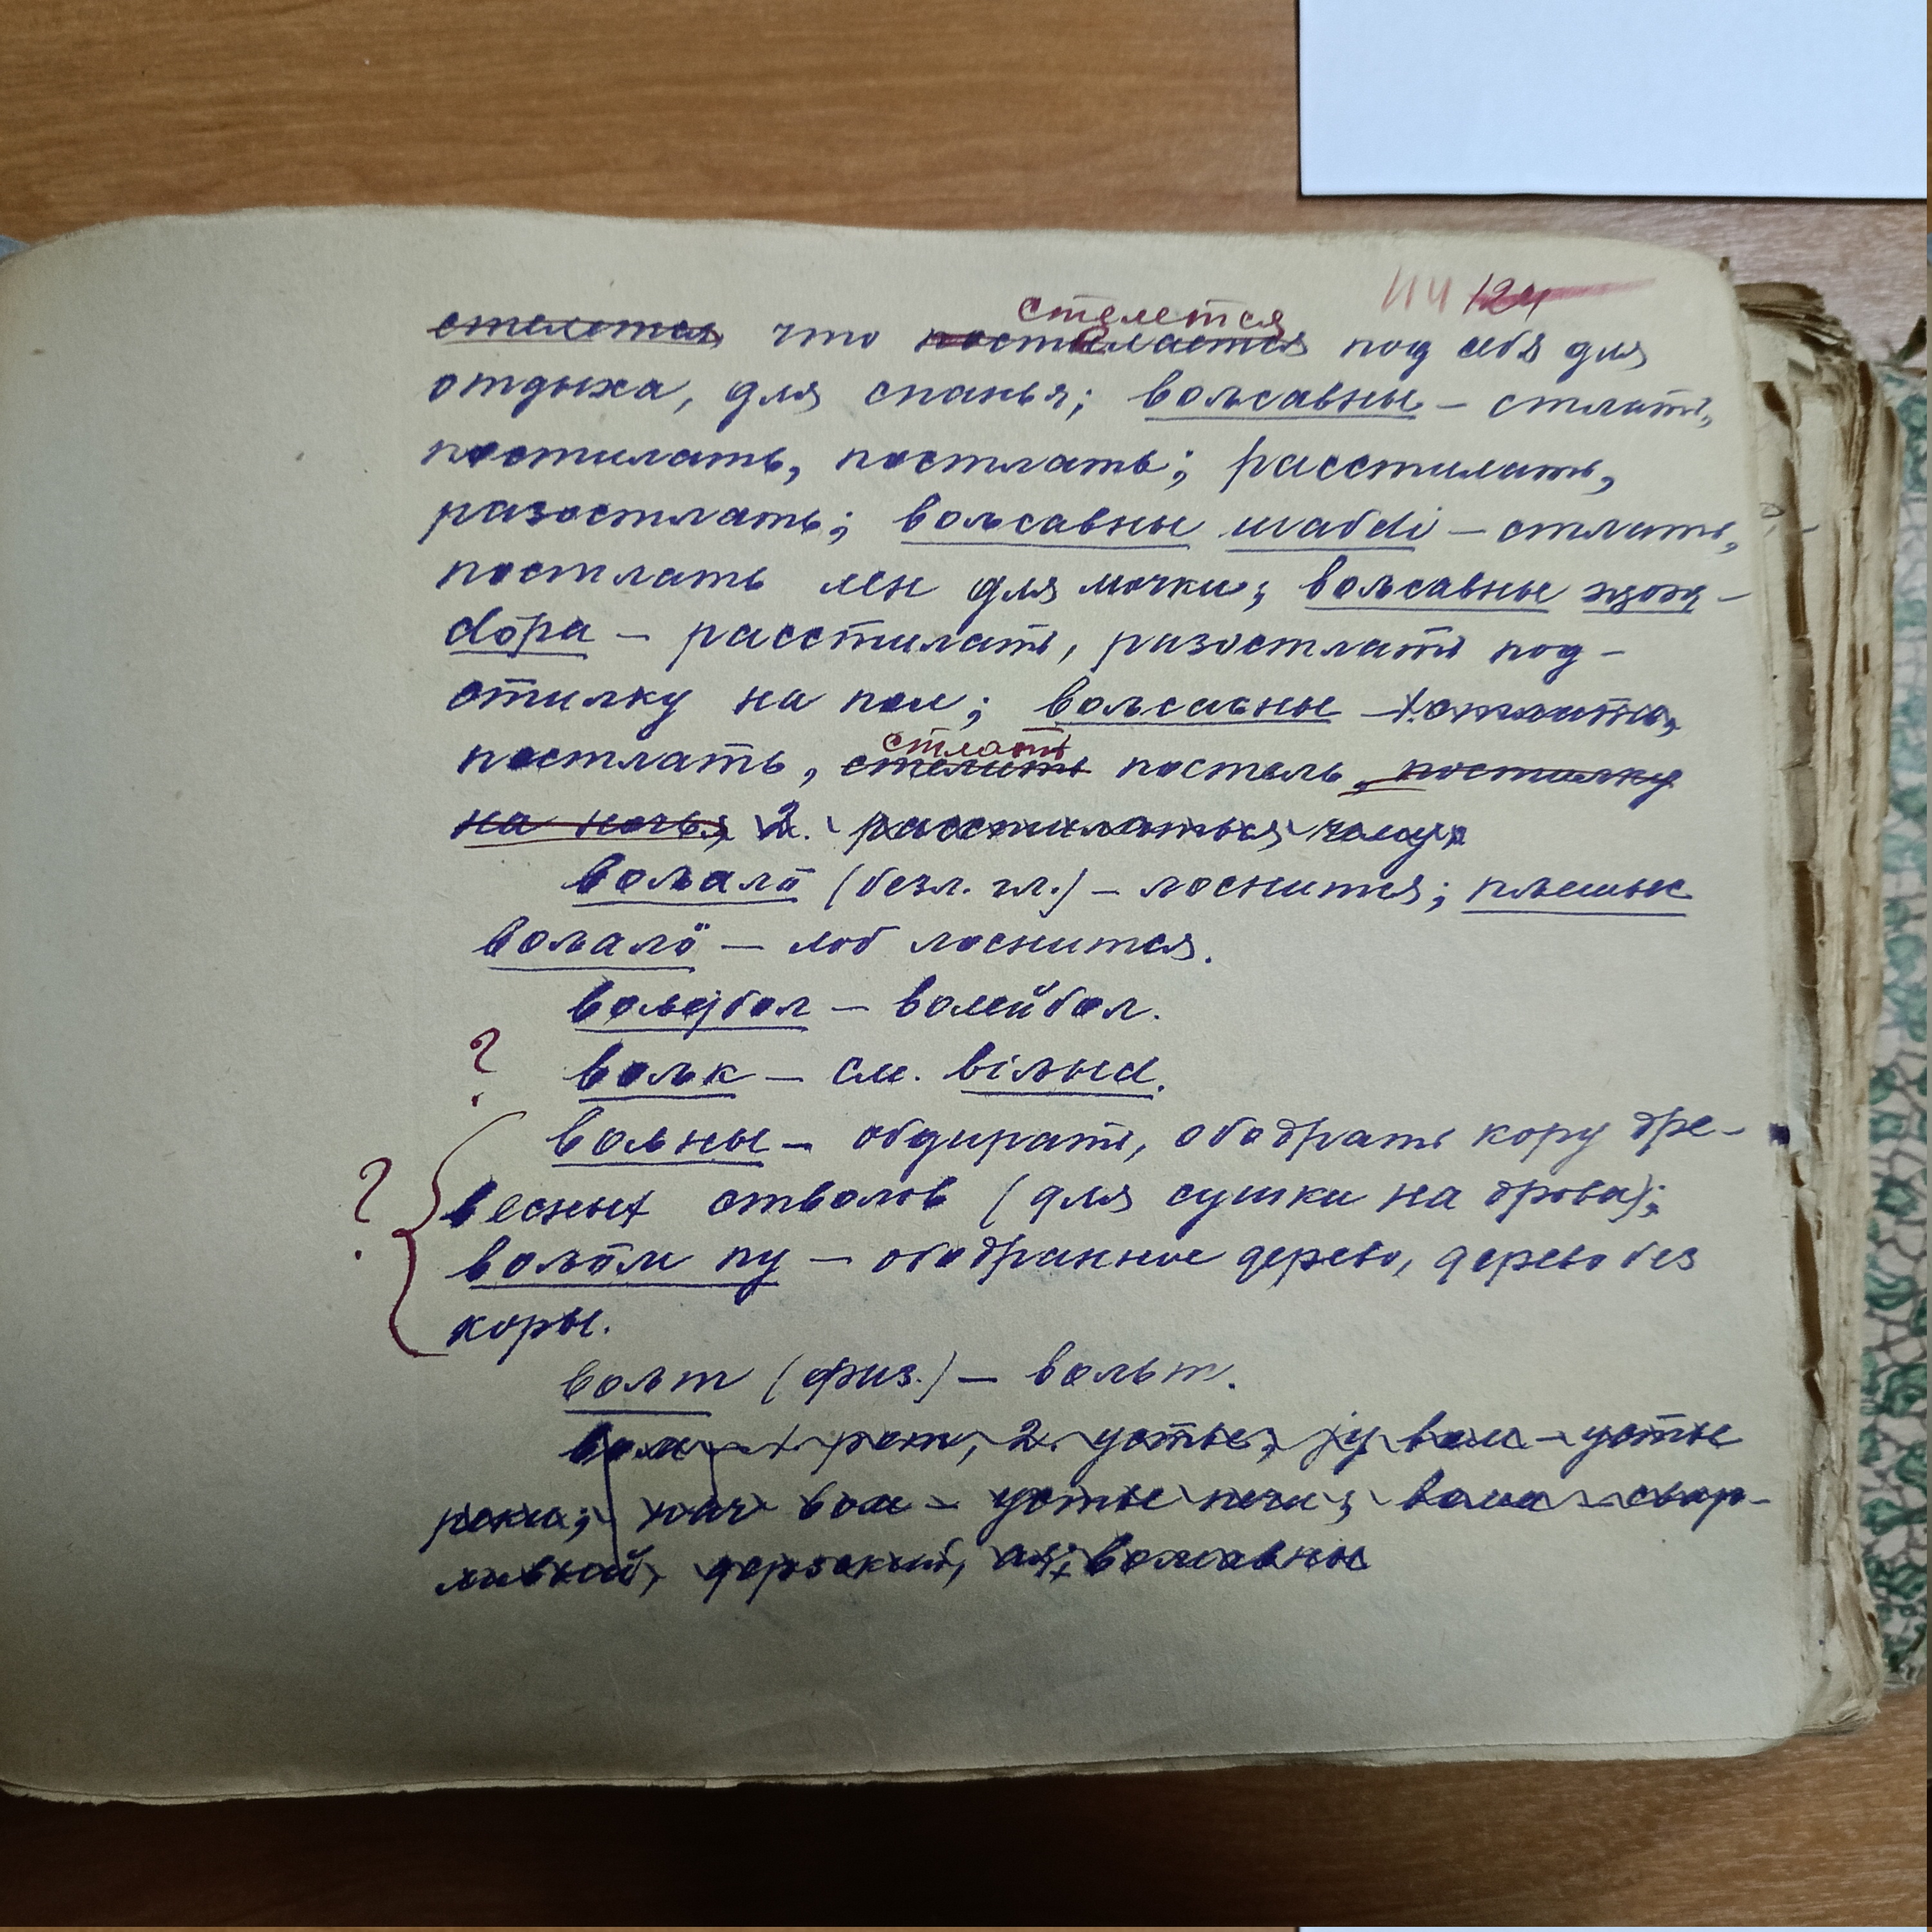 114 124
стелется
стелется что постилается под себя для
отдыха, для спанья; вольсавны – стлать,
постилать, постлать; расстилать,
разостлать; вольсавны шабді – стлать,
постлать лен для мочки; вольсавны
döра – расстилать, разостлать под–
стилку на пол; вольсавны
стлать
постлать, стелить постель, постилку
на ночь; 2. расстилаться
вольалö (безл. гл.) – лоснится; плешьыс
вольалö – лоб лоснится.
вольеjбол – волейбол.
? вольк – см. вільыd.
вольны – обдирать, ободрать кору дре–
? весных стволов (для сушки на дрова);
вольöм пу – ободранное дерево, дерево без
коры.
вольт (физ.) – вольт.
вом – 1. рот, 2. устье; jу вом – устье
реки; вом – устье печи; вома – свар–
ливый, дерзкий,